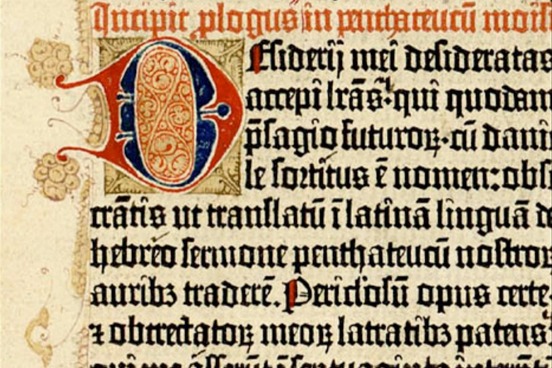 Incipit plogus in penthateucū moisi
Desiderij mei desideratas
accepi lr̄as: qui quodam
p̄sagio futuroꝝ· cū dani
le sortitus ē nomen: obse
crātis ut translatū ī latinā linguā d
hebreo sermone penthateucū nostroꝝ
auribꝫ traderē. Periclosū opus certe
⁊ obtrectatoꝝ meoꝝ latratibꝫ patens